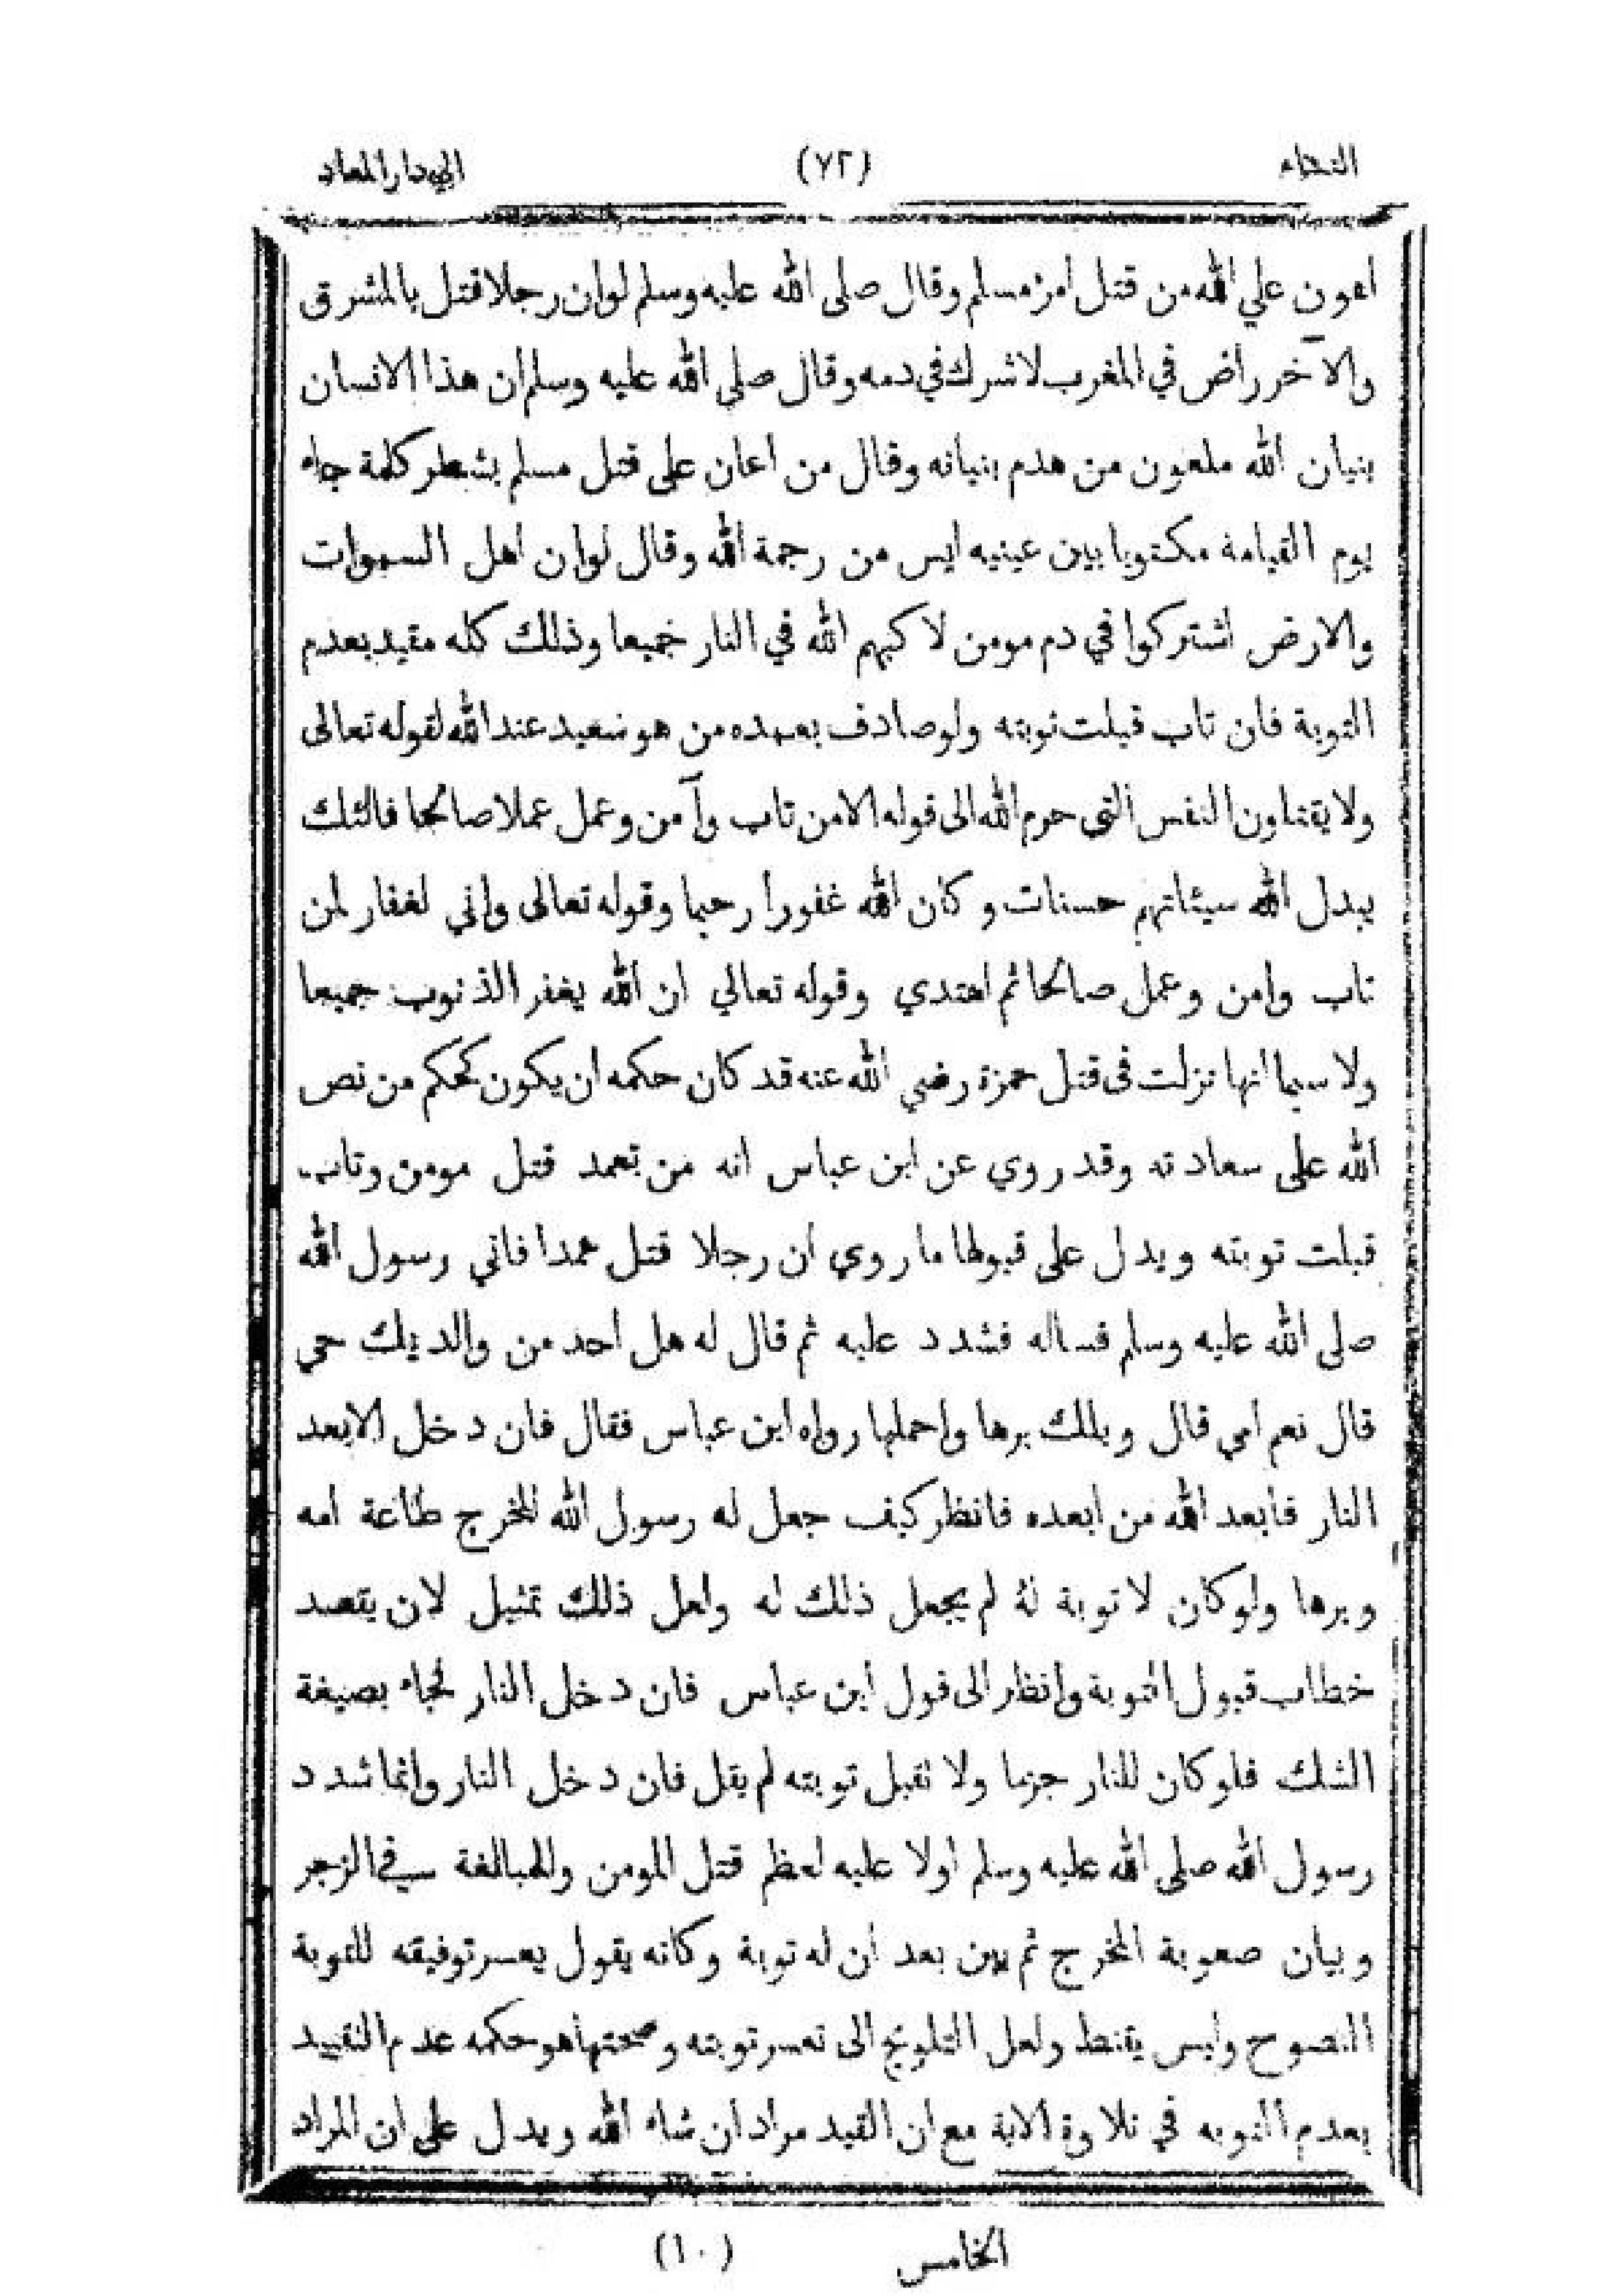 النساء (٧٢) الى دار المعاد
اهون علي الله من قتل امرء مسلم وقال صلى الله عليه وسلم لو ان رجلا قتل بالمشرق
والآخر راض في المغرب لاشرك في دمه وقال صلى الله عليه وسلم ان هذا الانسان
بنيان الله ملعون من هدم بنيانه وقال من اعان على قتل مسلم بشطر كلمة جاء
يوم القيامة مكتوبا بين عينيه ايس من رحمة الله وقال لو ان اهل السموات
والارض اشتركوا في دم مومن لاكبهم الله في النار جميعا وذلك كله مقيد بعدم
التوبة فان تاب قبلت توبته ولو صادف بعمده من هو سعيد عند الله لقوله تعالى
ولا يقتلون النفس التي حرم الله الى قوله الا من تاب وآمن وعمل عملا صالحا فالئك
يبدل الله سيئاتهم حسنات وكان الله غفورا رحيما وقوله تعالى واني لغفار لمن
تاب وامن وعمل صالحا ثم اهتدي وقوله تعالي ان الله يغفر الذنوب جميعا
ولا سيما انها نزلت فى قتل حمزة رضي الله عنه قد كان حكمه ان يكون كحكم من نص
الله على سعادته وقد روي عن ابن عباس انه من تعمد قتل مومن وتاب
قبلت توبته ويدل على قبولها ما روي ان رجلا قتل عمدا فاتي رسول الله
صلى الله عليه وسلم فساله فشدد عليه ثم قال له هل احد من والديك حي
قال نعم امي قال ويلك برها واحملها رواه ابن عباس فقال فان دخل الابعد
النار فابعد الله من ابعده فانظر كيف جعل له رسول الله المخرج طاعة امه
وبرها ولو كان لا توبة له لم يجعل ذلك له ولعل ذلك تمثيل لان يقصد
خطاب قبول التوبة وانظر الى قول ابن عباس فان دخل النار فجاء بصيغة
الشك فلو كان للنار جزما ولا تقبل توبته لم يقل فان دخل النار وانما شدد
رسول الله صلى الله عليه وسلم اولا عليه لعظم قتل المومن وللمبالغة في الزجر
وبيان صعوبة المخرج ثم بين بعد ان له توبة وكانه يقول يعسر توفيقه للتوبة
النصوح وليس يقنط ولعل التلويح الى تعسر توبته وصحتها هو حكمه عدم التقييد
بعدم التوبه في تلاوة الاية مع ان القيد مراد ان شاء الله ويدل على ان المراد
الخامس (١٠)